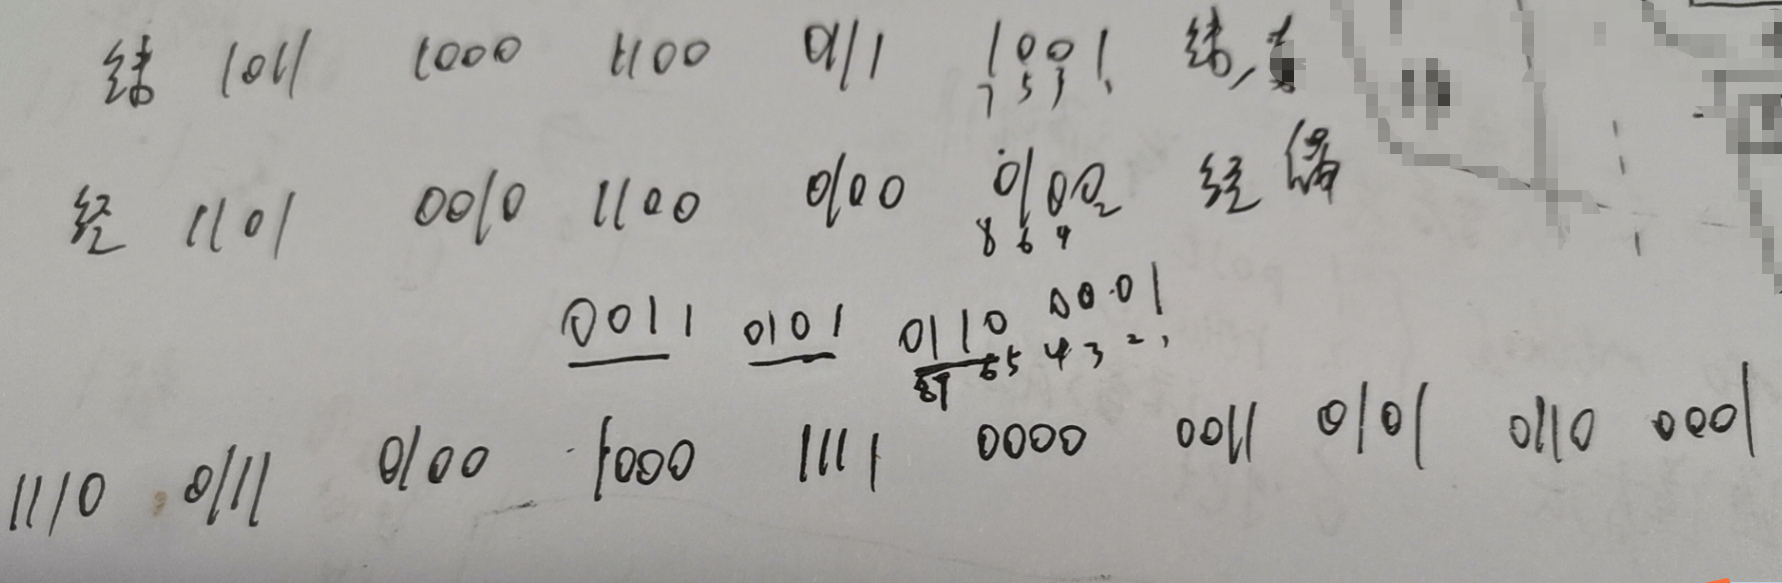 纬 1011 1000 1100 0111 1001 纬,
7 5 3 1
经 1101 0010 1100 0100 0100 经 偶
8 6 4 2
0011 0101 0110 0001
87 65 43 21
1110 0111 0100 1000 1111 0000 0011 0101 0110 0001